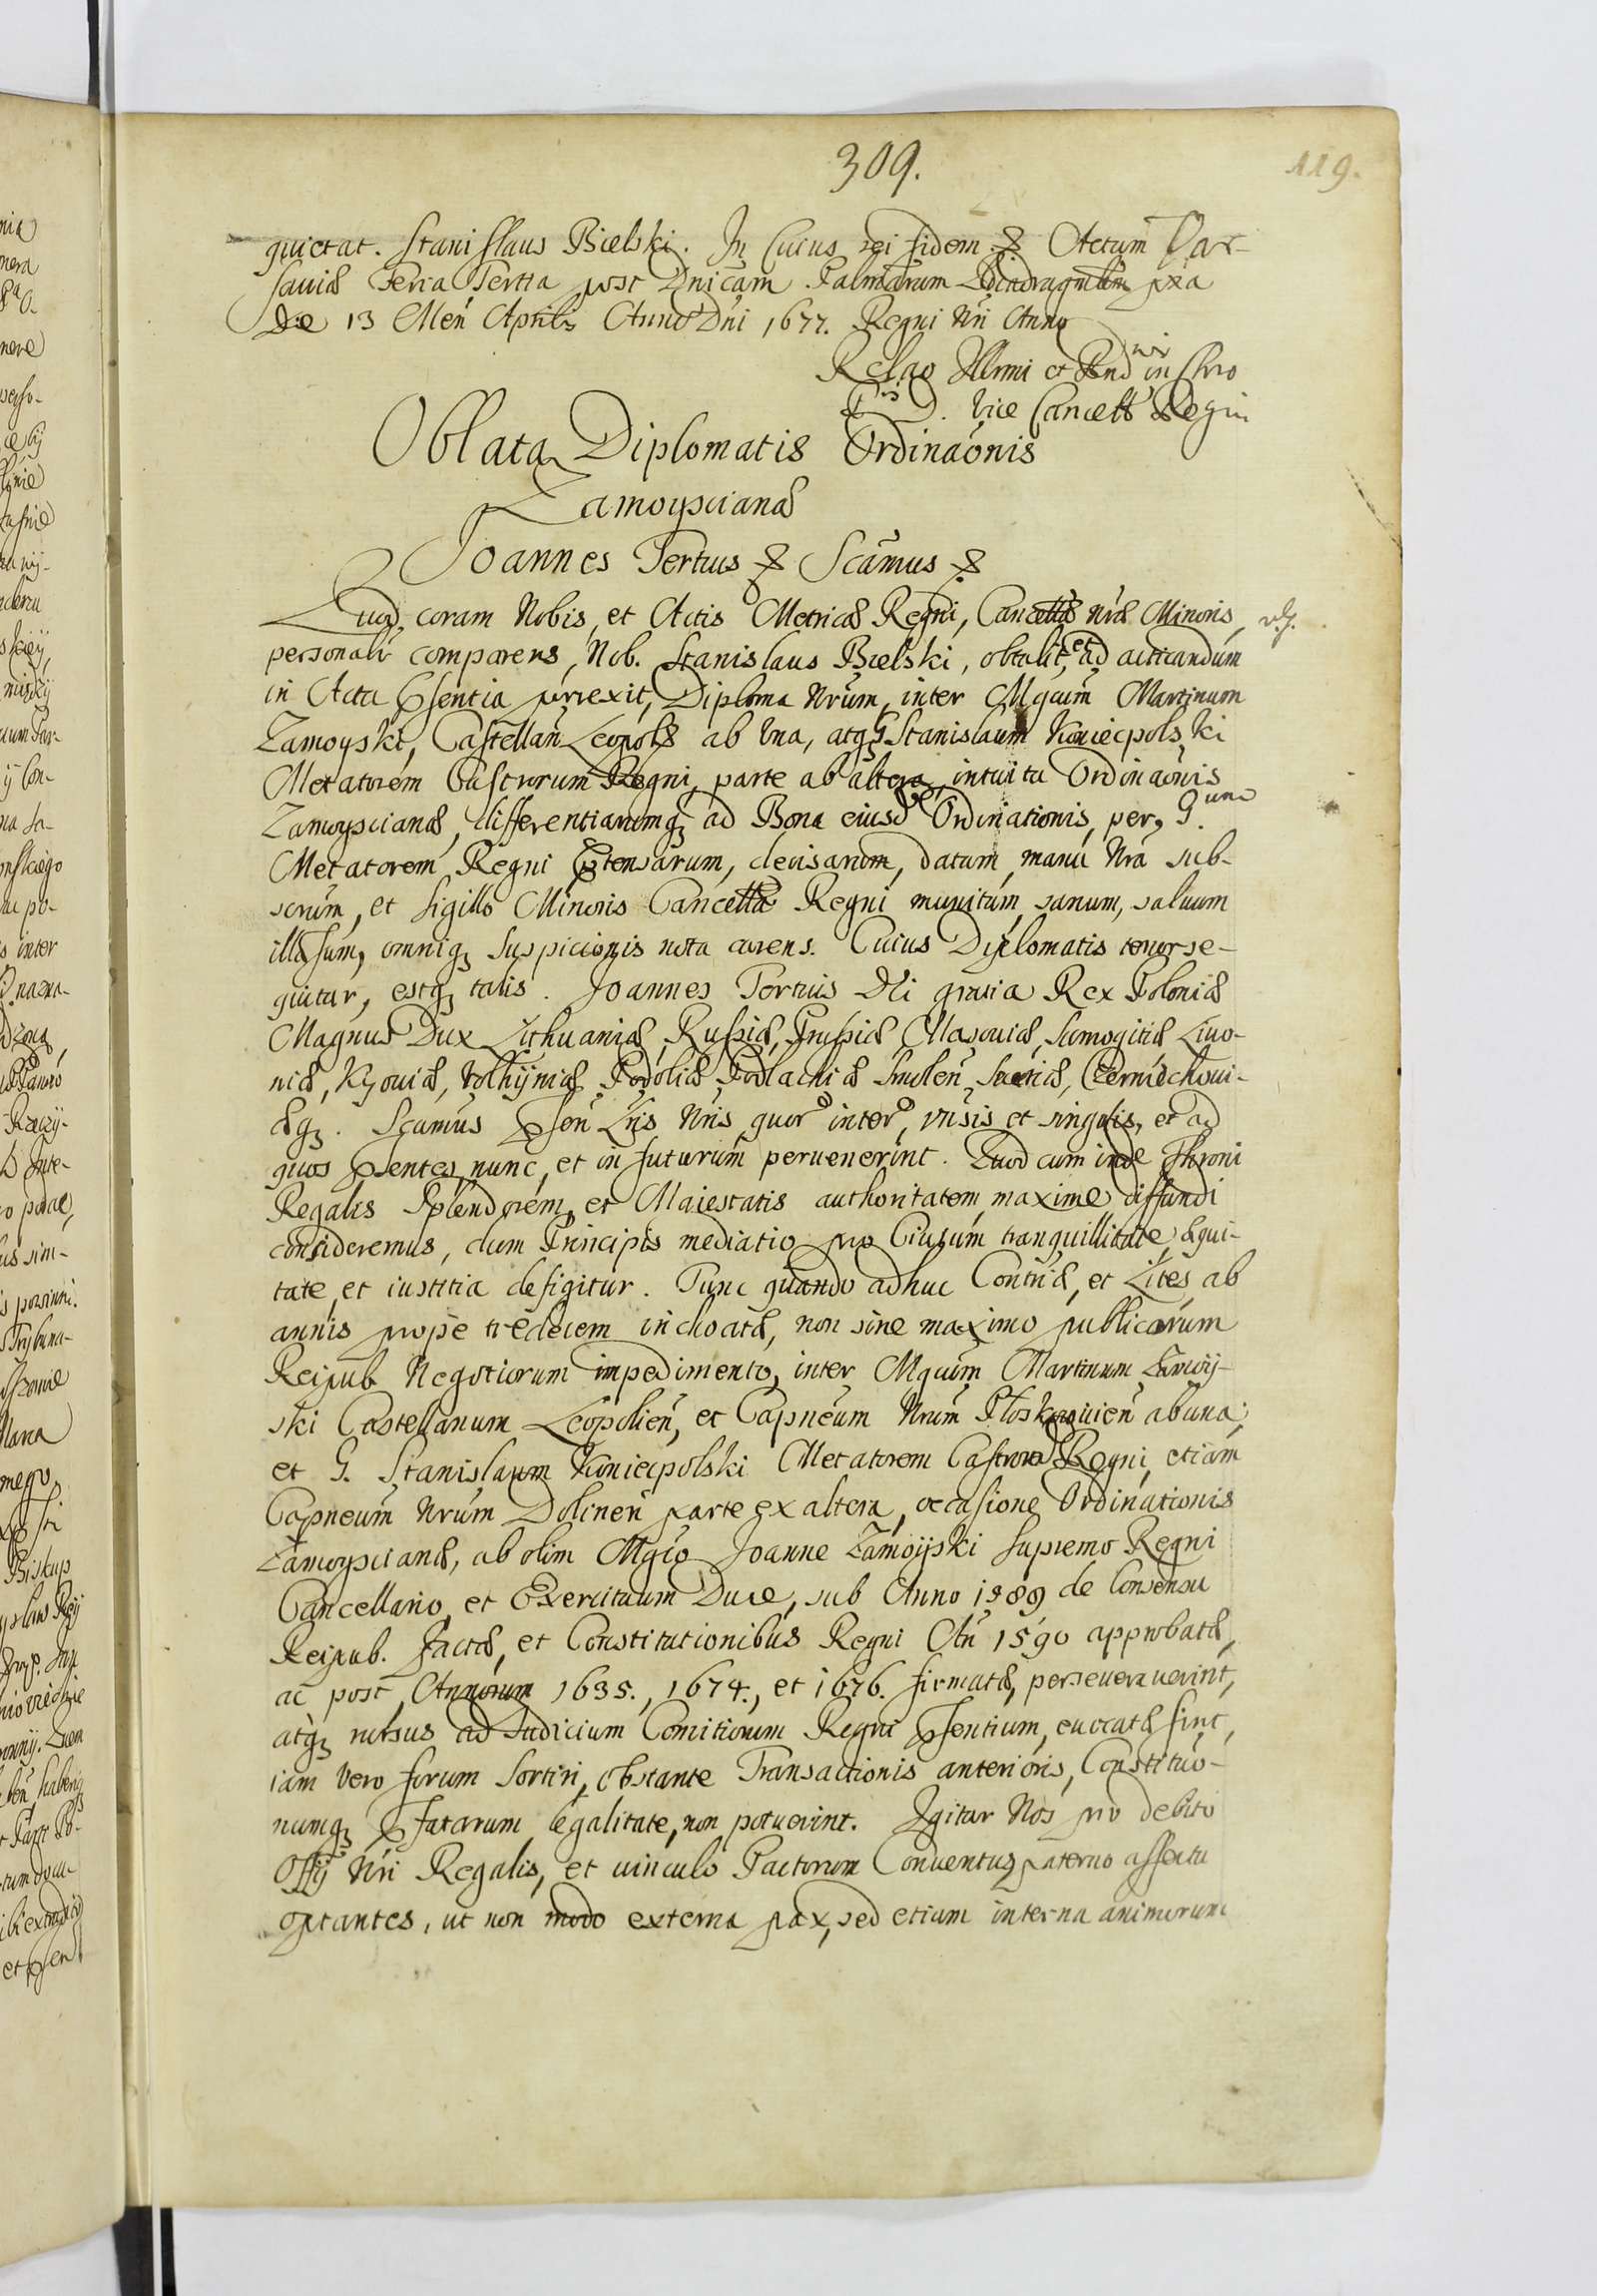 309.
119.
quietat. Stanislaus Bielski. In Cuius rei fidem & Actum Var-
saviæ Feria Tertia post Dnicam Palmarum
Die 13 Men Aprilis Anno Dni 1677. Regni Nri Anno
Relao Illrmi et Rnd in Chro
Pris D. Vice Cancell Regni
Oblata Diplomatis Ordinaonis
Zamoyscianæ
Joannes Tertius & Scamus &
Quod coram Nobis, et Actis Metricæ Regni, Cancellæ Nræ Minoris,
personalr comparens, Nob. Stanislaus Bielski, obtulit, et ad acticandum
in Acta psentia porrexit, Diploma Nrum, inter Mgcum Martinum
Zamoyski, Castellan Leopols ab Una, atq G Stanislaum Koniecpolski
Metatorem Castrorum Regni, parte ab altera, intuitu Ordinaonis
Zamoyscianæ, differentiarumq ad Bona eiusd Ordinationis, per G.
Metatorem Regni ptensarum, decisarum, datum, manu Nra sub-
scrum, et sigillo Minoris Cancellæ Regni munitum, sanum, saluum
illæsum, omniq suspicionis nota carens. Cuius Diplomatis tenor se-
quitur, estq talis. Joannes Tertius Dei gratia Rex Poloniæ
Magnus Dux Lithuaniæ, Russiæ, Prussiæ Masouiæ, Samogitiæ Liuo-
niæ, Kyouiæ, Volhyniæ Podoliæ Podlachiæ Smolen Seueriæ, Czerniechoui-
æq. Scamus psen Lris Nris quor inter, vnsis et singulis, et ad
quos psentes nunc, et in futurum peruenerint. Quod cum inde Throni
Regalis Splendorem, et Maiestatis authoritatem maxime diffundi
consideremus, dum Principis mediatio pro Ciuium tranquillitate, æqui-
tate, et iustitia defigitur. Tunc quando adhuc Contræ, et Lites ab
annis prope tredecim inchoatæ, non sine maximo publicorum
Reipub Negotiorum impedimento, inter Mgcum Martinum Zamoy-
ski Castellanum Leopolien, et Capneum Nrum Ploskirouien ab una,
et G. Stanislaum Koniecpolski Metatorem Castror Regni, etiam
Capneum Nrum Dolinen parte ex altera, occasione Ordinationis
Zamoyscianæ, ab olim Mgco Joanne Zamoyski Supremo Regni
Cancellario, et Exercituum Duce, sub Anno 1589 de Consensu
Reipub. factæ, et Constitutionibus Regni An 1590 approbatæ,
ac post Annorum 1635., 1674., et 1676. firmatæ, perseuerauerint,
atq rursus ad Judicium Comitiorum Regni psentium, euocatæ sint,
iam vero forum sortiri, obstante Transactionis anterioris, Constituo-
numq pfatarum legalitate, non potuerint. Igitur Nos pro debito
Offij Nri Regalis, et uinculo Pactorum Conuentus, paterno affectu
optantes, ut non modo externa pax, sed etiam interna animorum